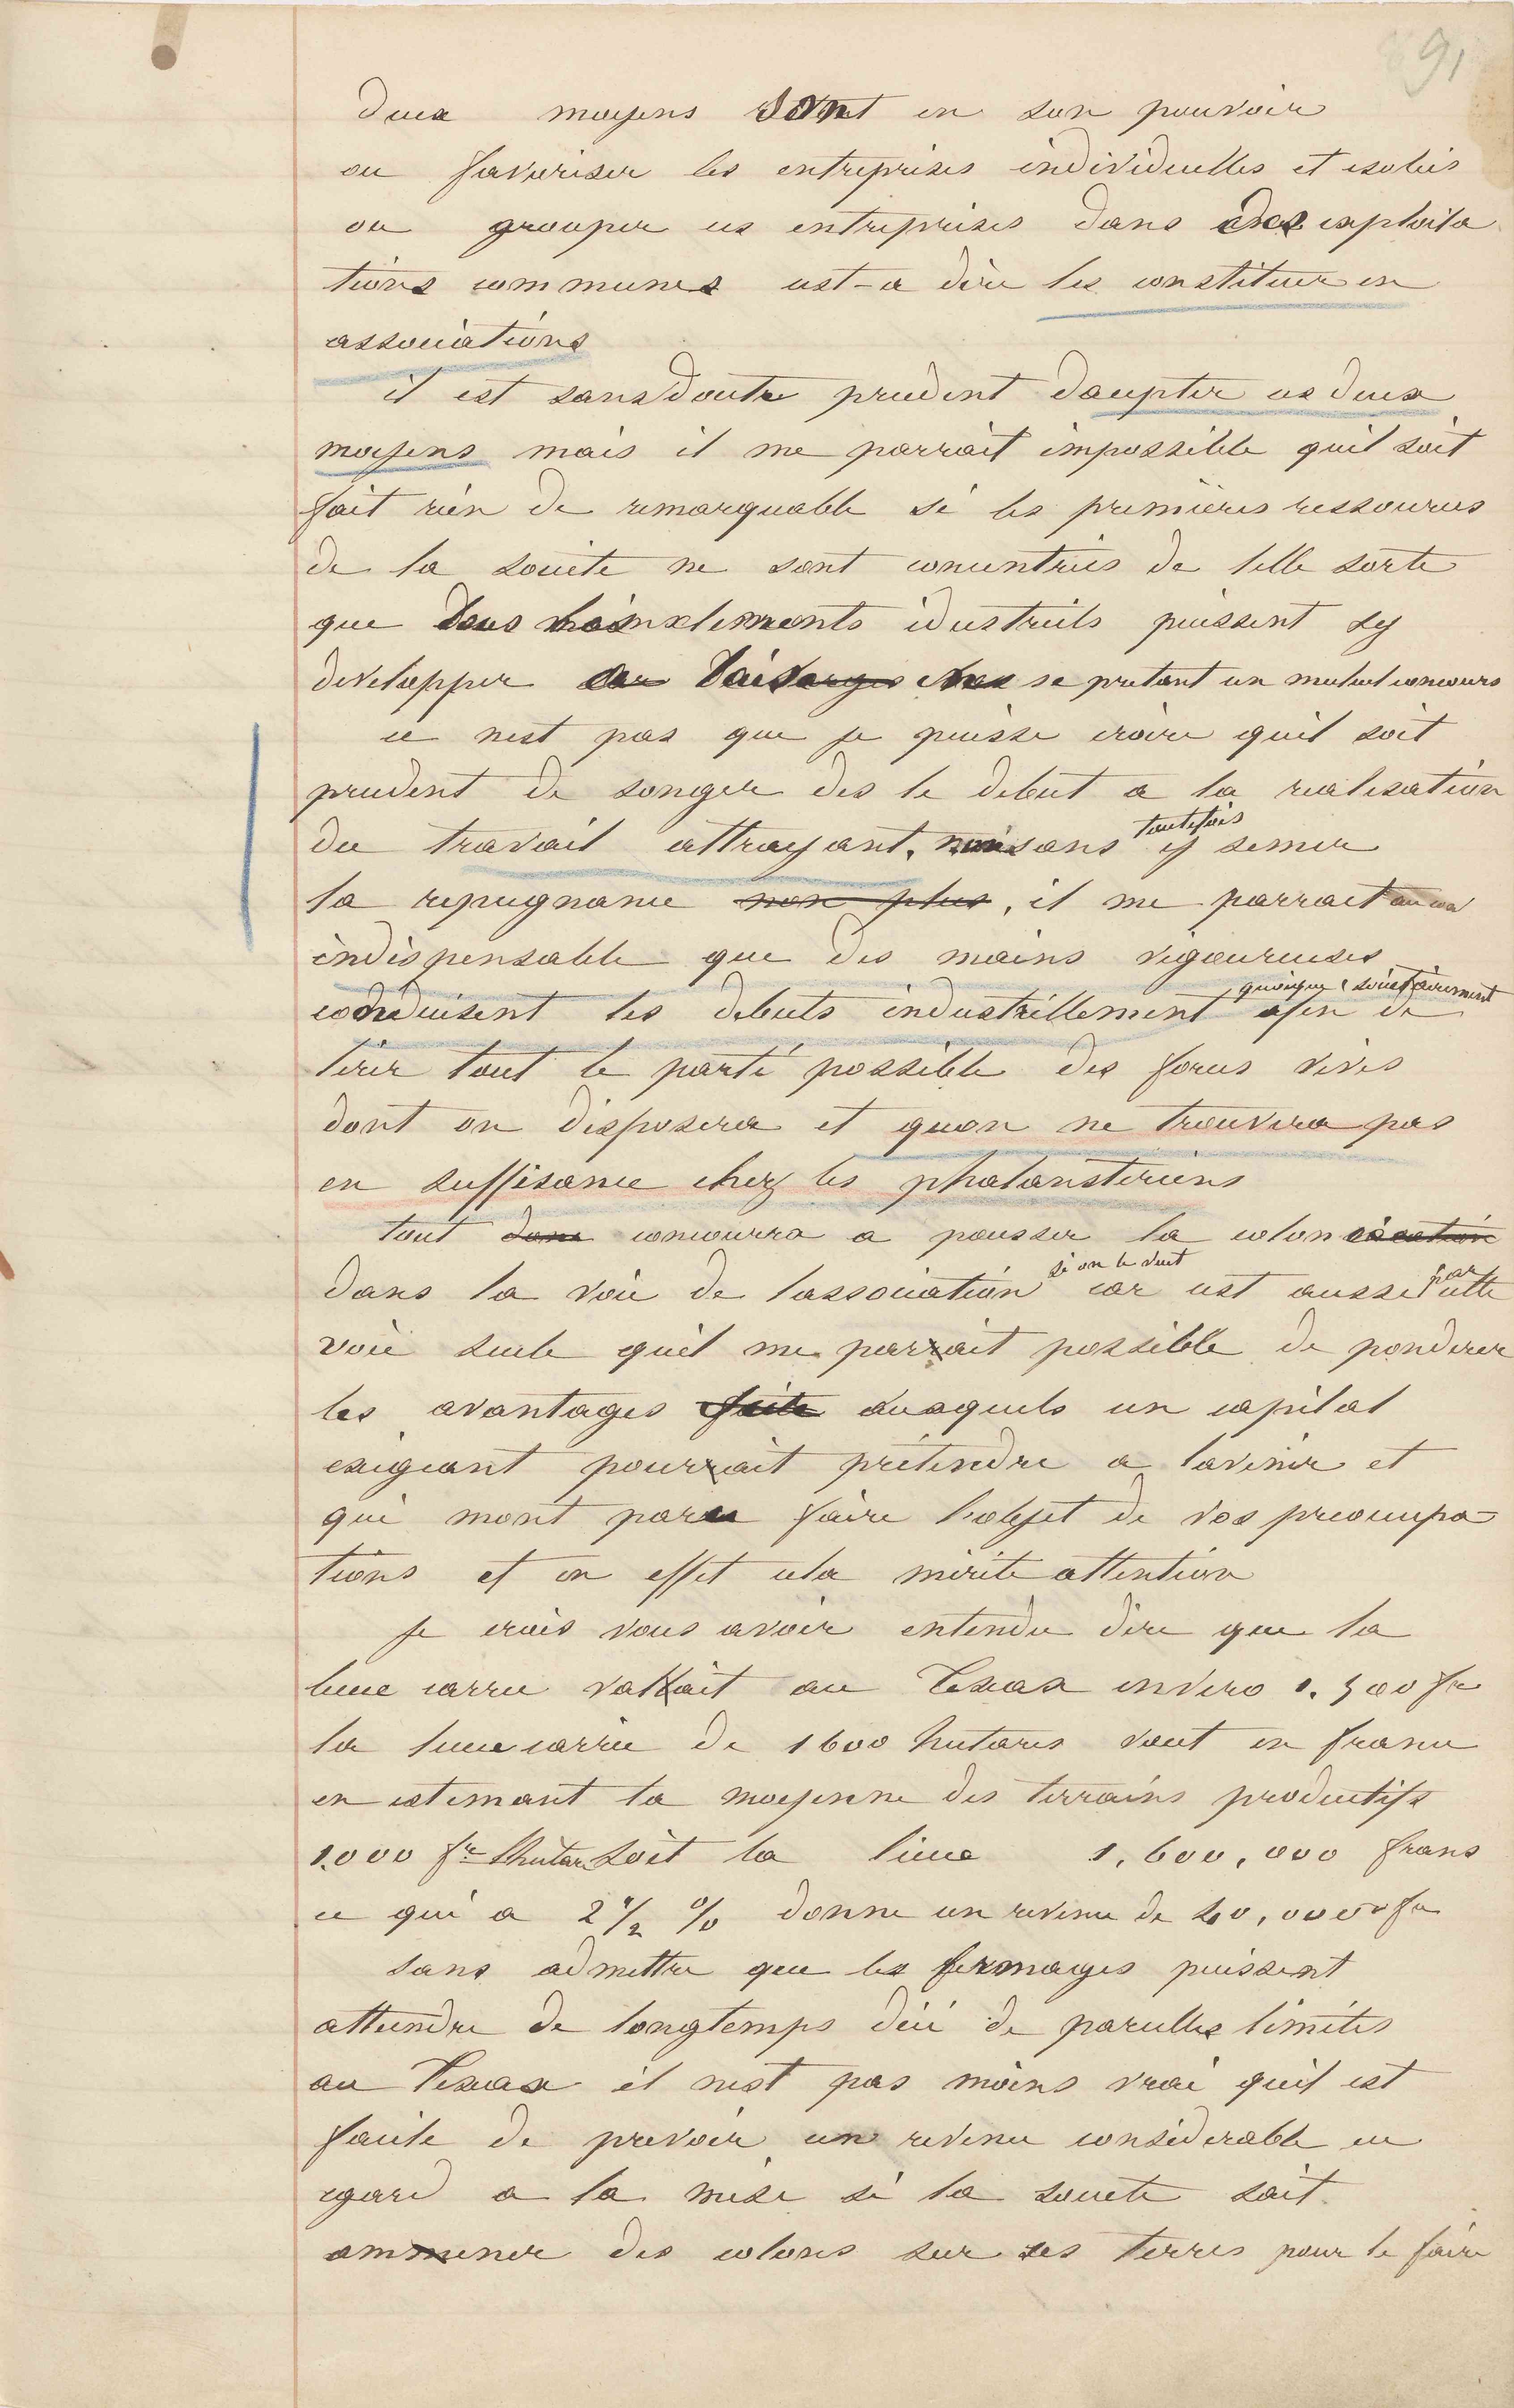 91
deux moyens sont en son pouvoir
ou favoriser les entreprises individuelles et isolées
ou grouper ces entreprises dans des exploita
tions communes cest-a dire les constituer en
associations
il est sans doute prudent daccepter ces deux
moyens mais il me parrait impossible quil soit
fait rien de remarquable si les premières ressources
de la société ne sont concentrées de telle sorte
que tous les éléments idustriels puissent sy
developper se pretant un mutuel concours
ce nest pas que je puisse croire quil soit
prudent de songer des le debut a la realisation
du travail attrayant, sans toutefois y semer
la repugnance non plus, il me parrait
indispensable que des mains vigoureuses
conduisent les debuts industriellement quoique sociétairement afin de
tirer tout le parti possible des forces vives
dont on disposera et quon ne trouvera pas
en suffisance chez les phalansteriens
tout donc concourra a pousser la colonisation
dans la voie de lassociation si on le veut car cest aussi par cette
voie seule quil me parrait possible de ponderer
les avantages faits auxquels un capital
exigeant pourrait prétendre a lavenir et
qui mont paru faire lobjet de vos preoccupa-
tions et en effet cela mérite attention
je crois vous avoir entendu dire que la
lieue carree vallait au Texas environ 1.500 fr
la lieue carrée de 1600 hectares vaut en france
en estimant la moyenne des terrains productifs
1.000 fr lhectar soit la lieue 1,600,000 francs
ce qui a 2 1/2 % donne un revenu de 40,000 fr
sans admettre que les fermages puissent
atteindre de longtemps dici de pareilles limites
au Texas il nest pas moins vrai quil est
facile de prevoir un revenu considerable eu
egard a la mise si la societe sait
ammener des colons sur ses terres pour le faire